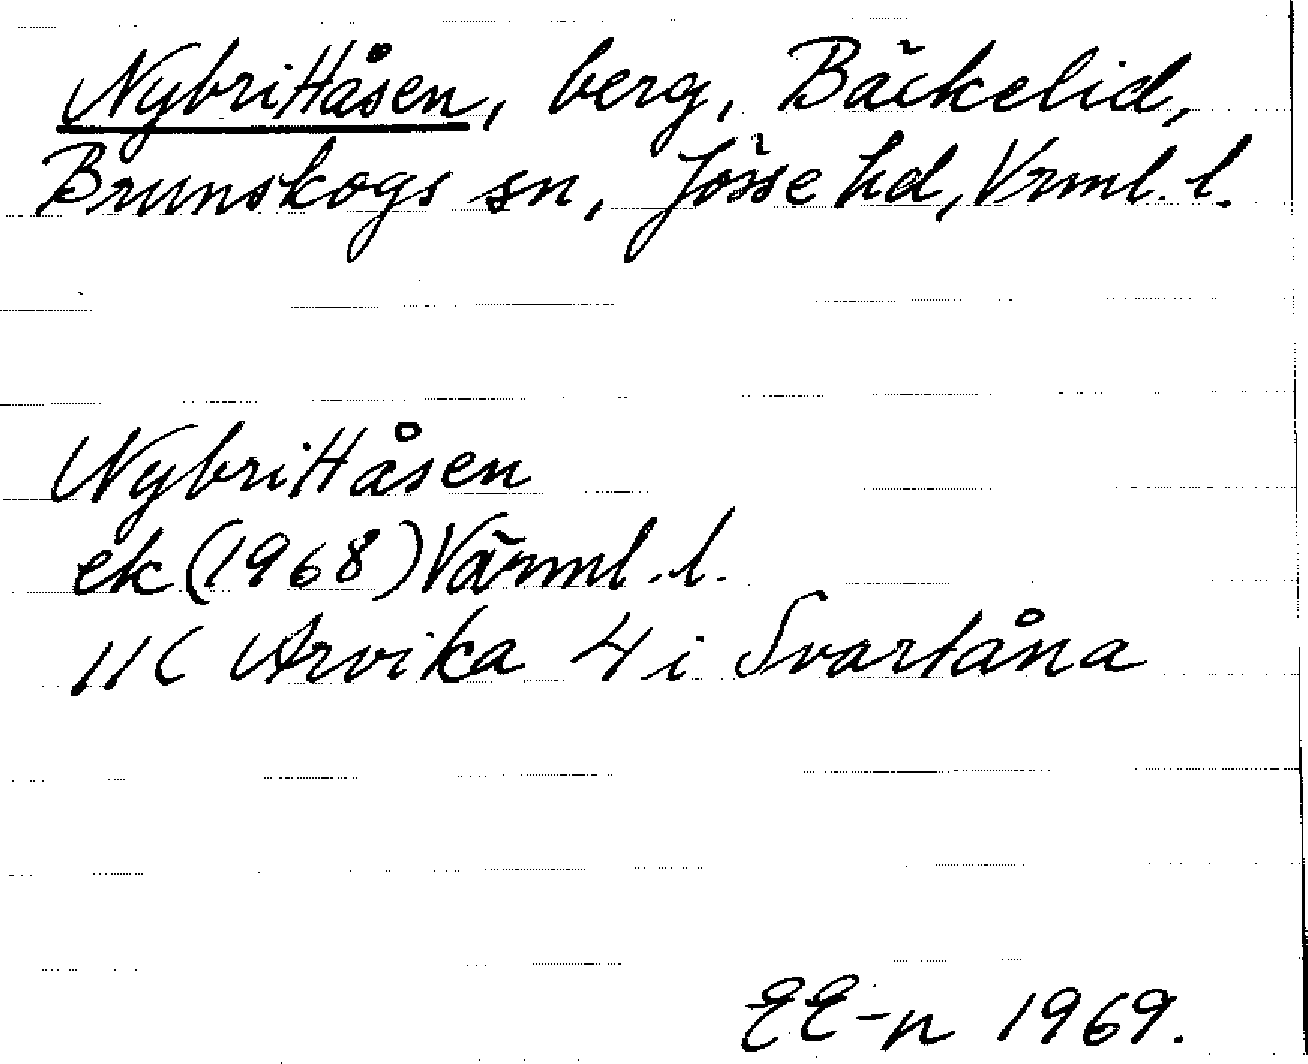 Nybrittåsen, berg, Bäckelid,
Brunskogs sn, Jösse hd, Vrml. l.
Nybrittåsen
ek (1968) Värml. l.
11C Arvika 4 i Svartåna
EE-n 1969.